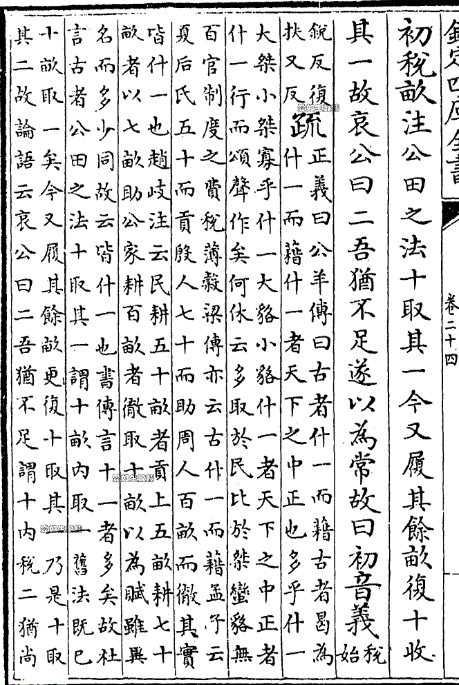 欽定四庫全書
卷二十四
初稅畝注公田之法十取其一今又履其餘畝復十收
其一故哀公曰二吾猶不足遂以為常故曰初音義稅始
銳反復扶又反疏正義曰公羊傳曰古者什一而藉古者曷為
什一而藉什一者天下之中正也多乎什一
大桀小桀寡乎什一大貉小貉什一者天下之中正者
什一行而頌聲作矣何休云多取於民比於桀蠻貉無
百官制度之費稅薄穀梁傳亦云古什一而藉孟子云
夏后氏五十而貢殷人七十而助周人百畝而徹其實
皆什一也趙岐注云民耕五十畝者貢上五畝耕七十
畝者以七畝助公家耕百畝者徹取十畝以為賦雖異
名而多少同故云皆什一也書傳言十一者多矣故杜
言古者公田之法十取其一謂十畝內取一舊法既已
十畝取一矣今又履其餘畝更復十取其一乃是十取
其二故論語云哀公曰二吾猶不足謂十內稅二猶尚